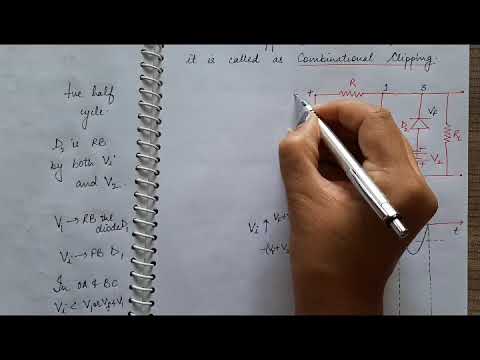 it is called as Combinational Clipping.
+ve half
cycle.
D₂ is RB
by both Vi
and V₂.
V₁ → RB the
diode D₁
Vi → FB D₁
In OA & BC
R
1
3
+
D₂
VF
V₂
RL
Vi
t